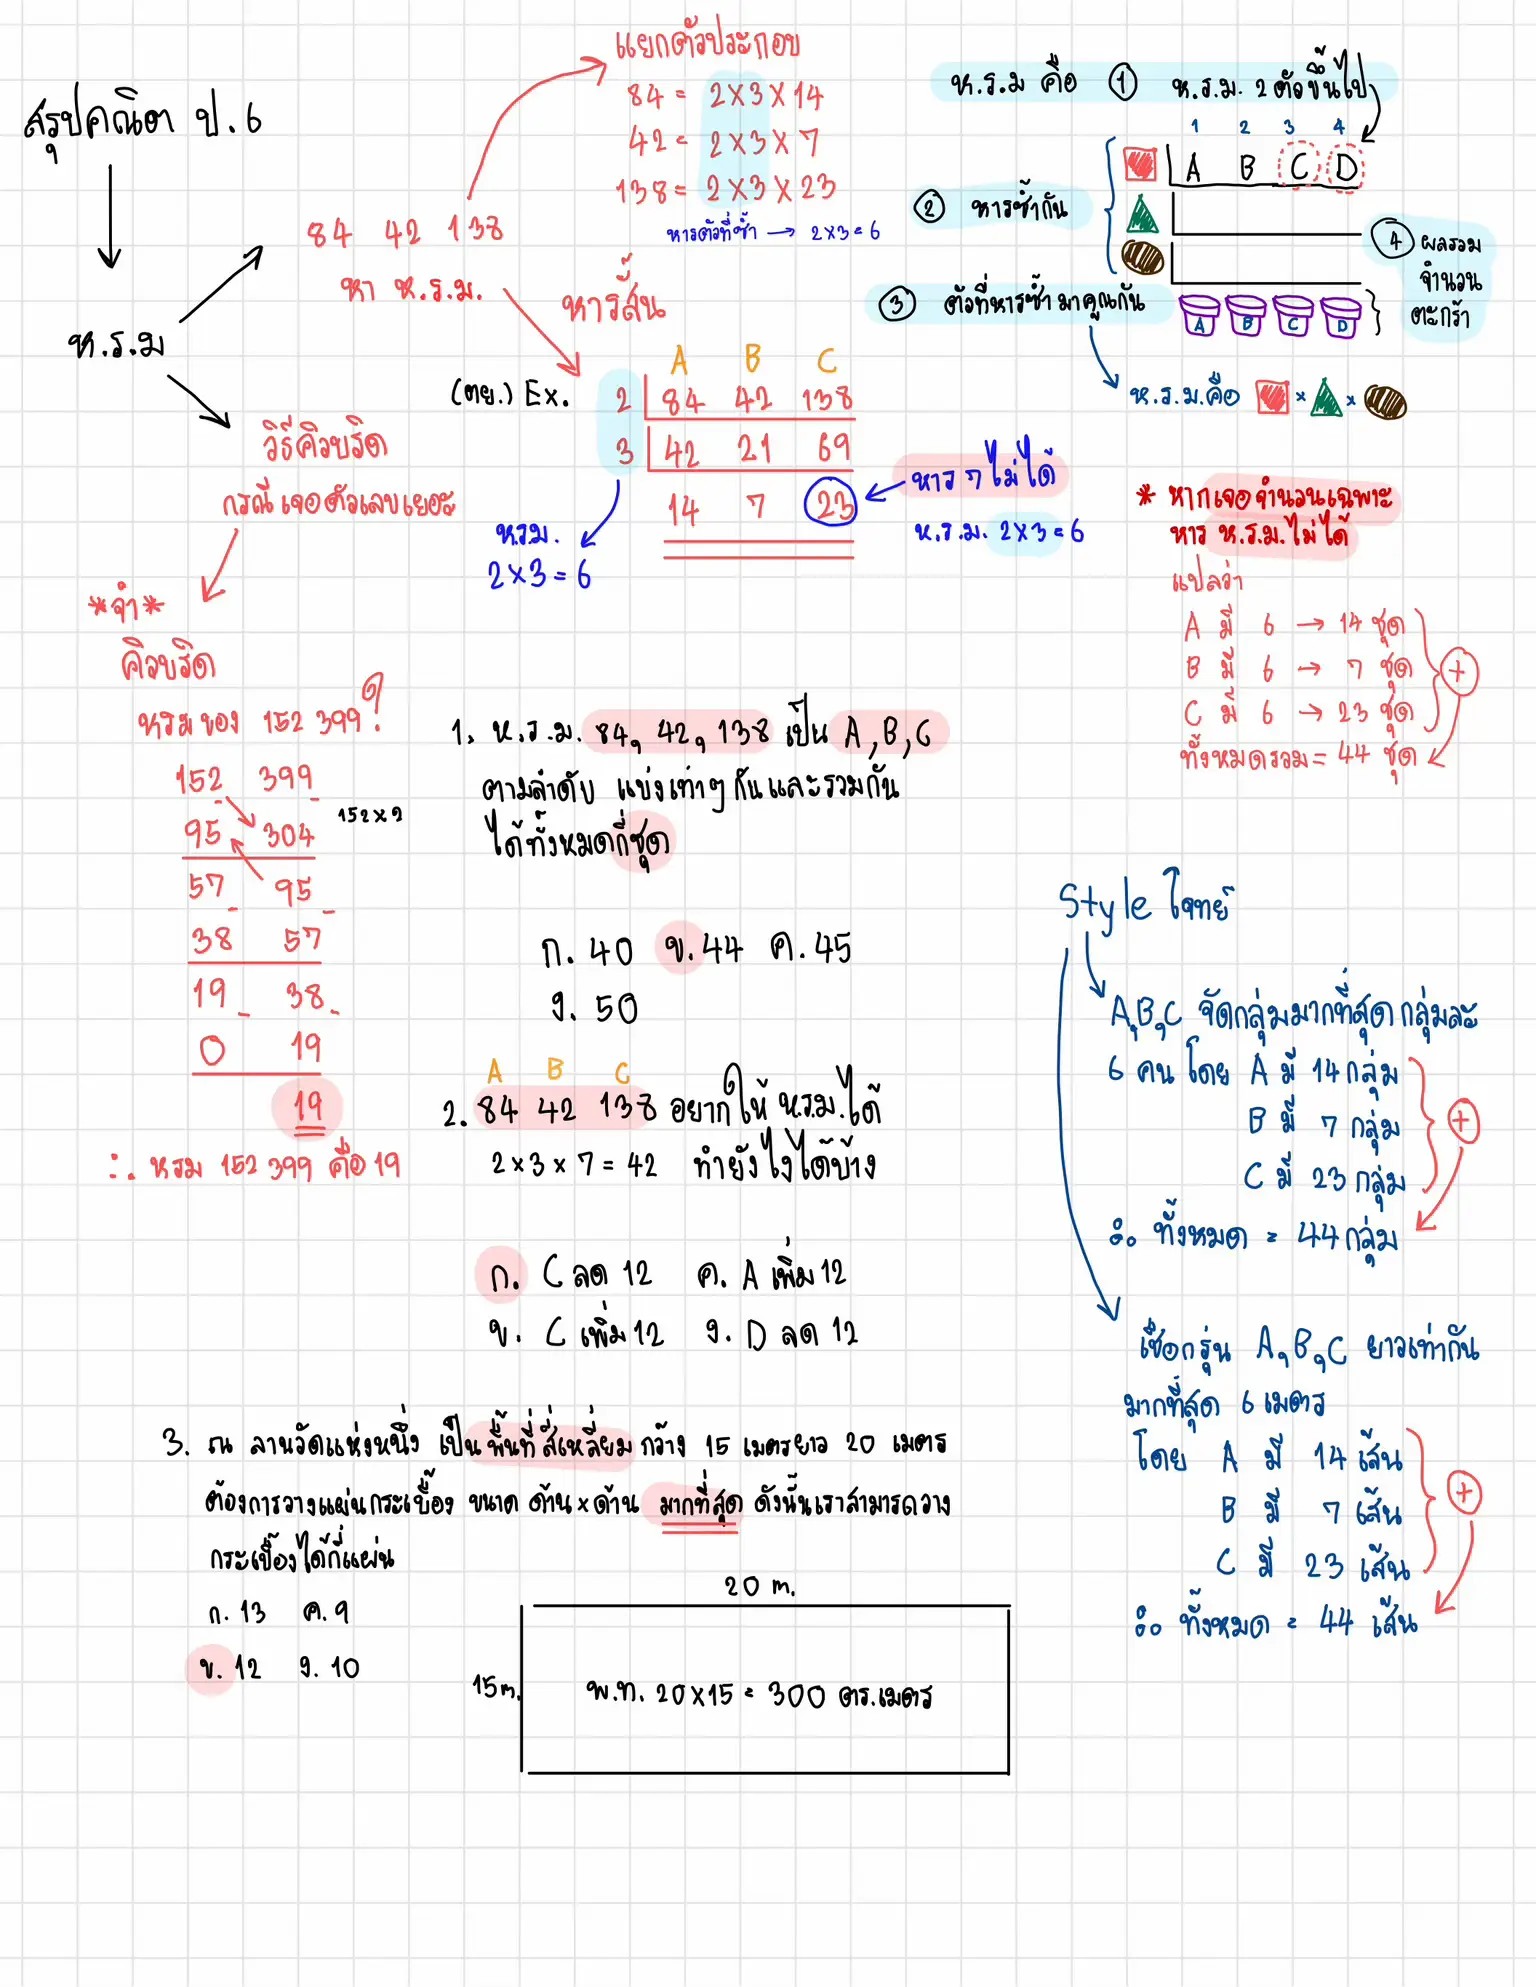 สรุปคณิตา ป.6
ห.ร.ม
84 42 138
หา ห.ร.ม.
แยกตัวประกอบ
84 = 2×3×14
42 = 2×3×7
138 = 2×3×23
หารตัวที่ซ้ำ → 2×3=6
หารสั้น
(ตย.) Ex.
A B C
2 84 42 138
3 42 21 69
14 7 23
หรม.
2×3=6
หาร 7 ไม่ได้
ห.ร.ม. 2×3=6
ห.ร.ม คือ ① ห.ร.ม. 2 ตัวขึ้นไป
1 2 3 4
A B C D
② หารซ้ำกัน
③ ตัวที่หารซ้ำ มาคูณกัน
④ ผลรวม
จำนวน
ตะกร้า
A B C D
ห.ร.ม.คือ × ×
* หากเจอจำนวนเฉพาะ
หาร ห.ร.ม.ไม่ได้
แปลว่า
A มี 6 → 14 ชุด
B มี 6 → 7 ชุด
C มี 6 → 23 ชุด
+
ทั้งหมดรวม = 44 ชุด
วิธีคิวบริด
กรณีเจอตัวเลขเยอะ
*จำ*
คิวบริด
หรมของ 152 399?
152 399
95 304 152×2
57 95
38 57
19 38
0 19
19
∴ หรม 152 399 คือ 19
1. ห.ร.ม. 84, 42, 138 เป็น A, B, C
ตามลำดับ แบ่งเท่าๆกันและรวมกัน
ได้ทั้งหมดกี่ชุด
ก. 40 ข. 44 ค. 45
ง. 50
A B C
2. 84 42 138 อยากให้ หรม.ได้
2×3×7=42 ทำยังไงได้บ้าง
ก. C ลด 12 ค. A เพิ่ม 12
ข. C เพิ่ม 12 ง. D ลด 12
3. ณ ลานวัดแห่งหนึ่ง เป็นพื้นที่สี่เหลี่ยม กว้าง 15 เมตรยาว 20 เมตร
ต้องการวางแผ่นกระเบื้อง ขนาด ด้าน×ด้าน มากที่สุด ดังนั้นเราสามารถวาง
กระเบื้องได้กี่แผ่น
ก. 13 ค. 9
ข. 12 ง. 10
20 m.
15 m.
พ.ท. 20×15 = 300 ตร.เมตร
Style โจทย์
A,B,C จัดกลุ่มมากที่สุด กลุ่มละ
6 คน โดย A มี 14 กลุ่ม
B มี 7 กลุ่ม
C มี 23 กลุ่ม
+
∴ ทั้งหมด = 44 กลุ่ม
เชือกรุ่น A,B,C ยาวเท่ากัน
มากที่สุด 6 เมตร
โดย A มี 14 เส้น
B มี 7 เส้น
C มี 23 เส้น
+
∴ ทั้งหมด = 44 เส้น